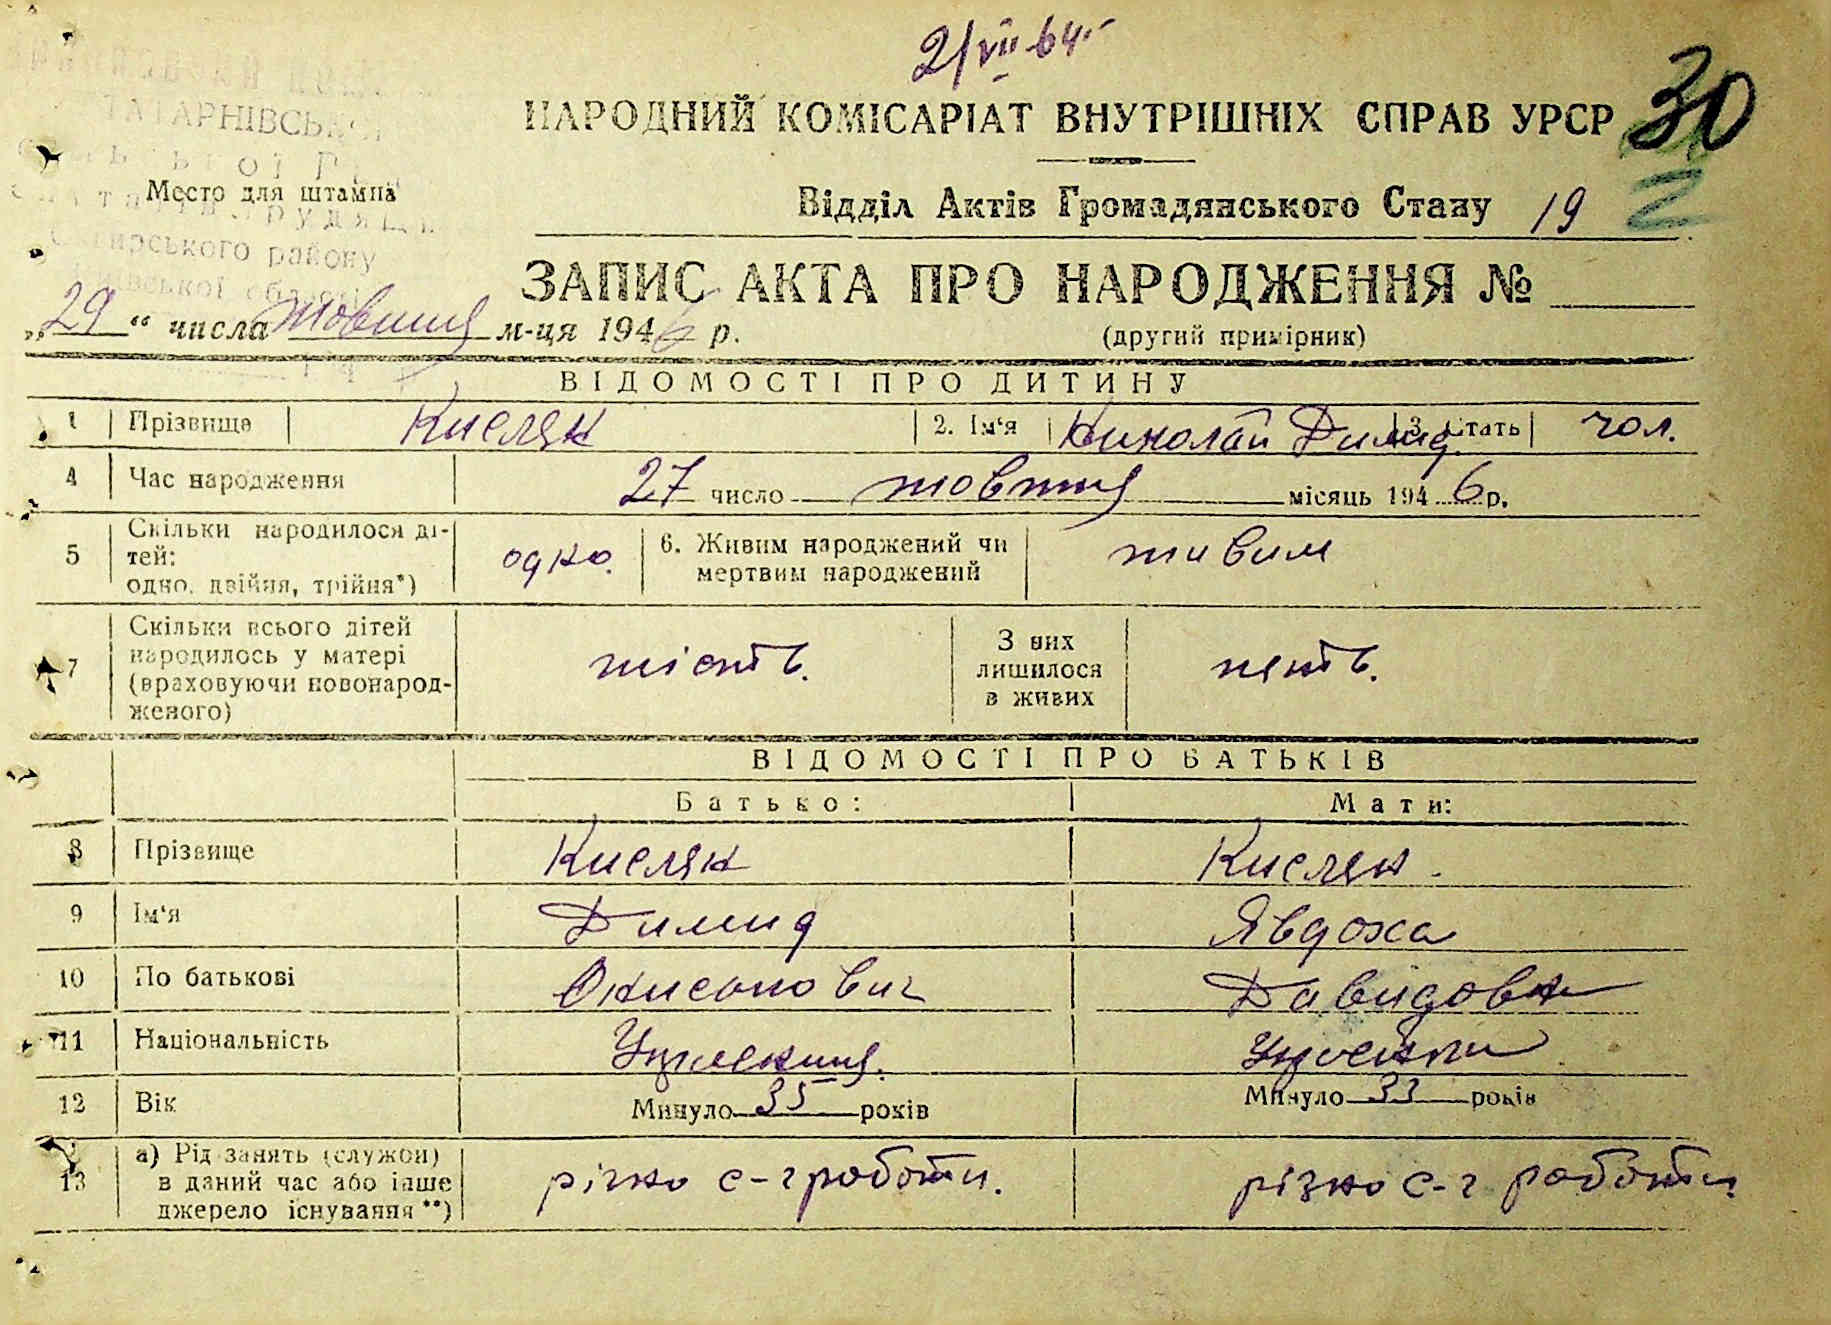 2/VII-64г
НАРОДНИЙ КОМІСАРІАТ ВНУТРІШНІХ СПРАВ УРСР 30
ТАТАРНІВСЬКОЇ
Место для штампа
Відділ Актів Громадянського Стану 19
району
ЗАПИС АКТА ПРО НАРОДЖЕННЯ №
„29“ числа Жовтня м-ця 1946 р.
(другий примірник)
ВІДОМОСТІ ПРО ДИТИНУ
1 Прізвище Кисляк 2. Ім'я Николай Димид. 3. Стать чол.
4 Час народження 27 число жовтня місяць 1946 р.
5 Скільки народилося ді-
тей:
одно, двійня, трійня*) одно. 6. Живим народжений чи
мертвим народжений живим
7 Скільки всього дітей
народилось у матері
(враховуючи новонарод-
женого) шість. З них
лишилося
в живих пять.
ВІДОМОСТІ ПРО БАТЬКІВ
Батько: Мати:
8 Прізвище Кисляк Кисляк.
9 Ім'я Димид Явдоха
10 По батькові Давидовн
11 Національність
12 Вік Минуло 35 років Минуло 33 років
13 а) Рід занять (служби)
в даний час або інше
джерело існування **) різно с-г роботи. різно с-г роботи.